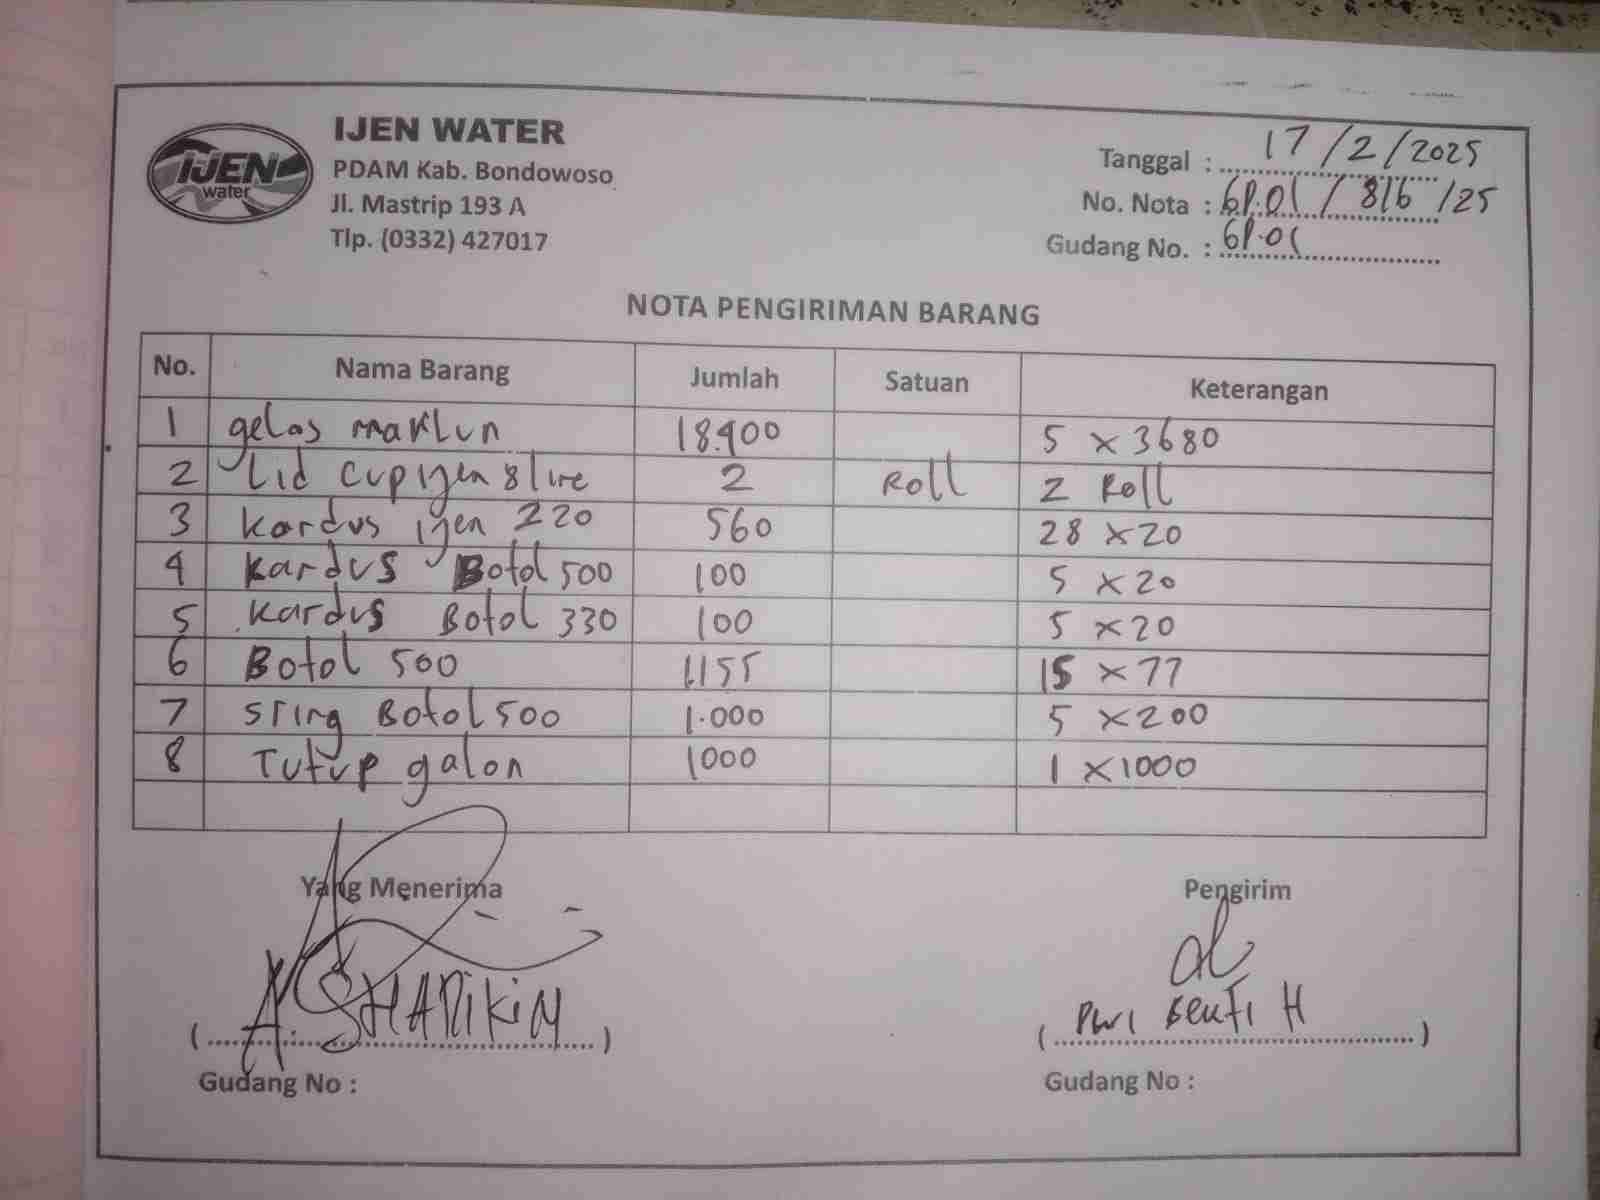 IJEN
water
IJEN WATER
PDAM Kab. Bondowoso
Jl. Mastrip 193 A
Tlp. (0332) 427017
Tanggal : 17/2/2025
No. Nota : 61.01 / 816 /25
Gudang No. : 61.01
NOTA PENGIRIMAN BARANG
No. Nama Barang Jumlah Satuan Keterangan
1 gelas maklun 18.400 5 x 3680
2 Lid cup ijen 8 line 2 Roll 2 Roll
3 kardus ijen 220 560 28 x 20
4 kardus Botol 500 100 5 x 20
5 kardus Botol 330 100 5 x 20
6 Botol 500 1.155 15 x 77
7 string Botol 500 1.000 5 x 200
8 Tutup galon 1000 1 x 1000
Yang Menerima Pengirim
( A. SHARIKIN ) ( H )
Gudang No : Gudang No :